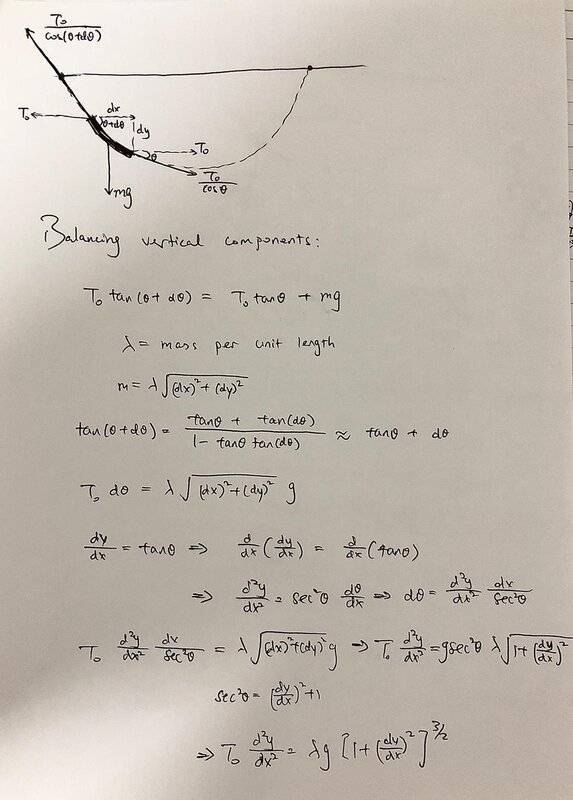 T₀/cos(θ+dθ)
T₀
dx
θ+dθ
dy
θ
T₀
T₀/cosθ
mg
Balancing vertical components:
T₀ tan(θ+dθ) = T₀ tanθ + mg
λ = mass per unit length
m = λ √((dx)²+(dy)²)
tan(θ+dθ) = (tanθ + tan(dθ))/(1- tanθ tan(dθ)) ≈ tanθ + dθ
T₀ dθ = λ √((dx)²+(dy)²) g
dy/dx = tanθ ⇒ d/dx (dy/dx) = d/dx (tanθ)
⇒ d²y/dx² = sec²θ dθ/dx ⇒ dθ = d²y/dx² dx/sec²θ
T₀ d²y/dx² dx/sec²θ = λ √((dx)²+(dy)²) g ⇒ T₀ d²y/dx² = g sec²θ λ √(1+(dy/dx)²)
sec²θ = (dy/dx)²+1
⇒ T₀ d²y/dx² = λg [1+(dy/dx)²]^3/2